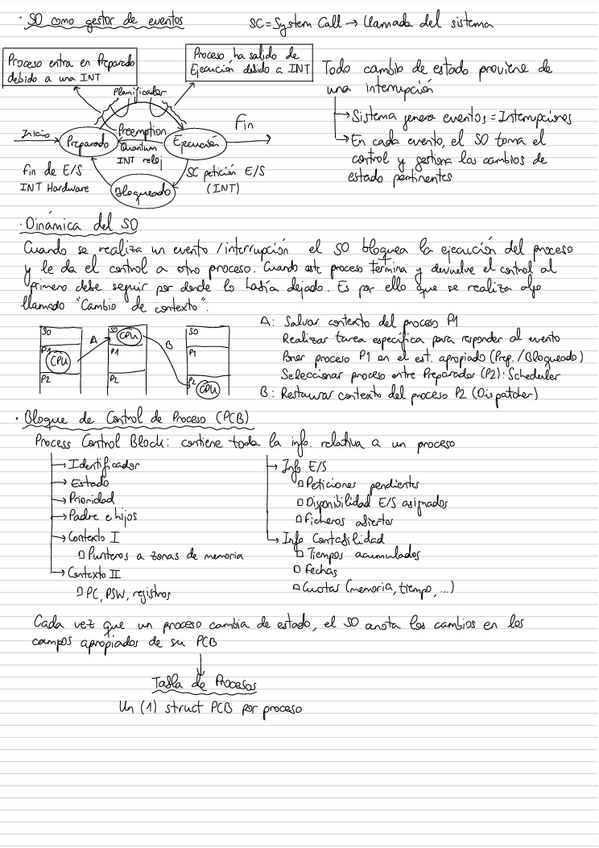 · SO como gestor de eventos
SC = System Call → Llamada del sistema
Proceso entra en Preparado
debido a una INT
Proceso ha salido de
Ejecución debido a INT
Planificador
Inicio
Preparado
Preemption
Quantum
INT reloj
Ejecución
Fin
Fin de E/S
INT Hardware
Bloqueado
SC petición E/S
(INT)
Todo cambio de estado proviene de
una interrupción
→ Sistema genera eventos = Interrupciones
→ En cada evento, el SO toma el
control y gestiona los cambios de
estado pertinentes
· Dinámica del SO
Cuando se realiza un evento / interrupción el SO bloquea la ejecución del proceso
y le da el control a otro proceso. Cuando este proceso termina y devuelve el control al
primero debe seguir por donde lo había dejado. Es por ello que se realiza algo
llamado "Cambio de contexto".
SO
P1
CPU
P2
A
SO
CPU
P1
P2
B
SO
P1
P2
CPU
A: Salvar contexto del proceso P1
Realizar tarea específica para responder al evento
Poner proceso P1 en el est. apropiado (Prep. / Bloqueado)
Seleccionar proceso entre Preparados (P2): Scheduler
B: Restaurar contexto del proceso P2 (Dispatcher)
· Bloque de Control de Proceso (PCB)
Process Control Block: contiene toda la info. relativa a un proceso
→ Identificador
→ Estado
→ Prioridad
→ Padre e hijos
→ Contexto I
▫ Punteros a zonas de memoria
→ Contexto II
▫ PC, PSW, registros
→ Info E/S
▫ Peticiones pendientes
▫ Disponibilidad E/S asignados
▫ Ficheros abiertos
→ Info Contabilidad
▫ Tiempos acumulados
▫ Fechas
▫ Cuotas (memoria, tiempo, ...)
Cada vez que un proceso cambia de estado, el SO anota los cambios en los
campos apropiados de su PCB
↓
Tabla de Procesos
Un (1) struct PCB por proceso